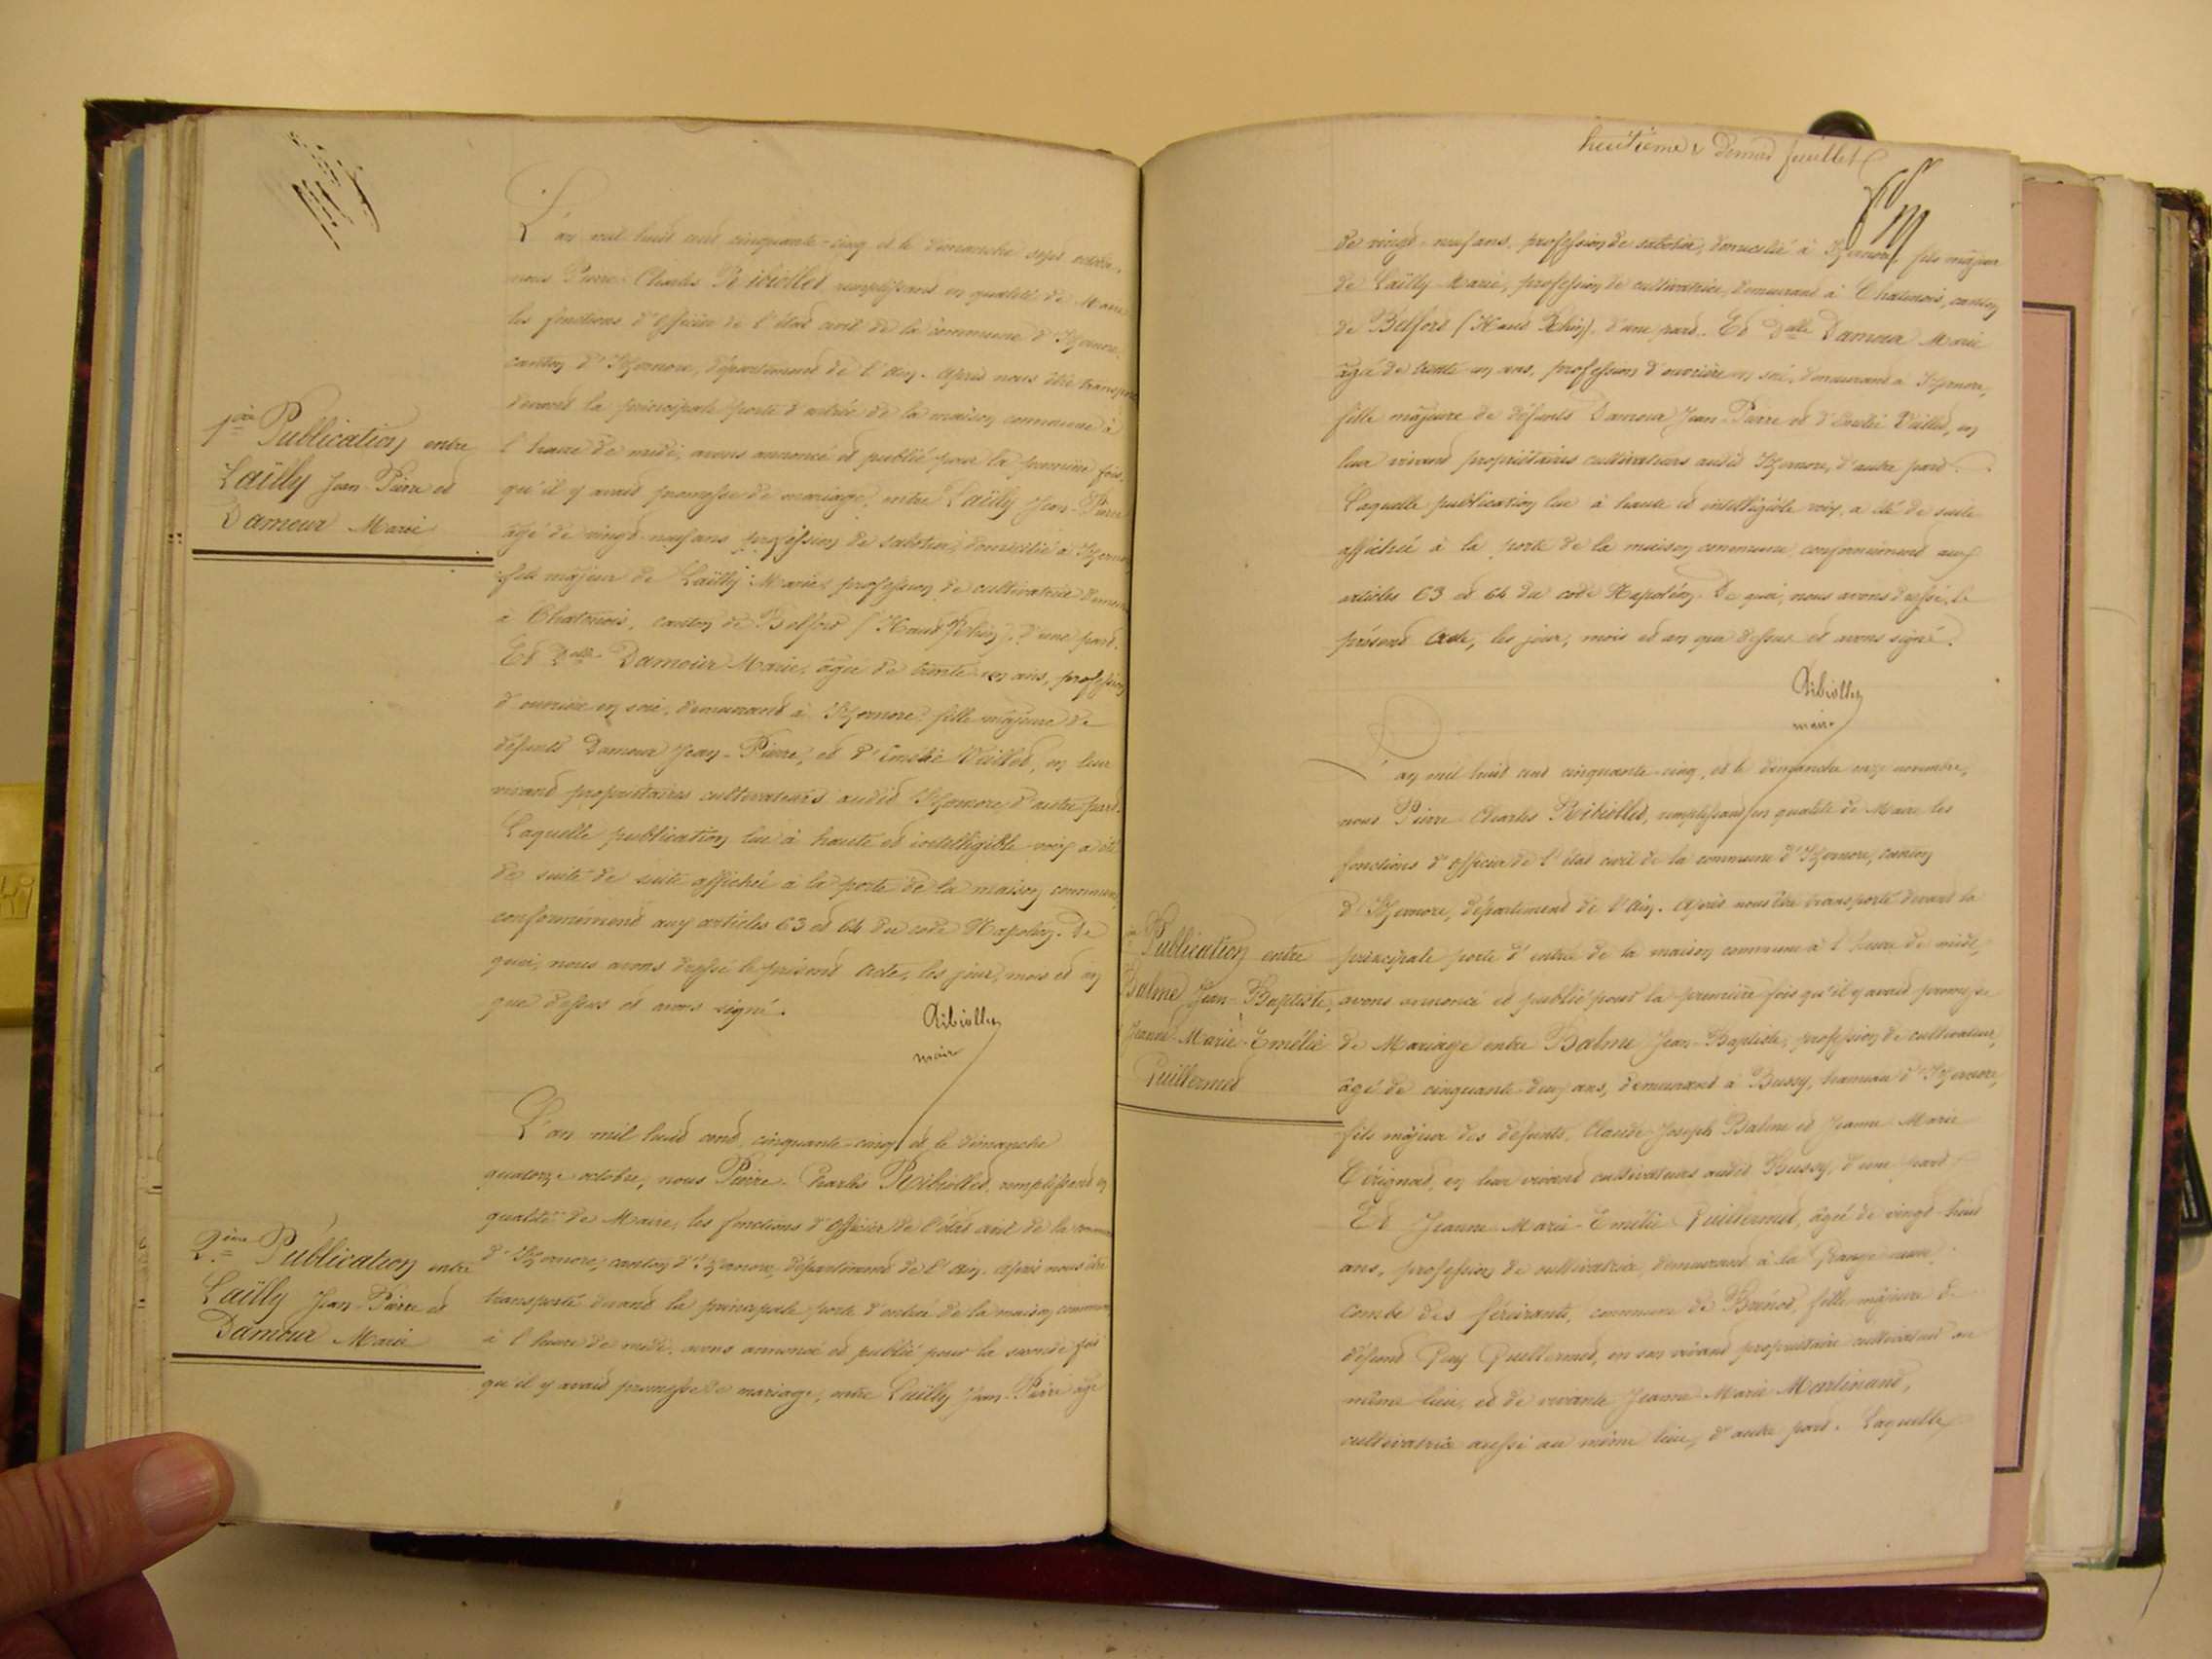 1ère Publication entre
Laïlly Jean-Pierre et
Damour Marie
L'an mil huit cent cinquante-cinq et le dimanche sept octobre,
nous Pierre-Charles Ribiollet remplissant en qualité de Maire
les fonctions d'officier de l'état civil de la commune d'Izernore,
canton d'Izernore, département de l'Ain. Après nous être transporté
devant la principale porte d'entrée de la maison commune à
l'heure de midi, avons annoncé et publié pour la première fois,
qu'il y avait promesse de mariage, entre Laïlly Jean-Pierre
âgé de vingt-neuf ans, profession de sabotier, domicilié à Izernore
fils majeur de Laïlly Marie, profession de cultivatrice demeurant
à Chatenois, canton de Belfort (Haut Rhin), d'une part.
Et Delle Damour Marie, âgée de trente-un ans, profession
d'ouvrière en soie, demeurant à Izernore, fille majeure de
défunts Damour Jean-Pierre, et d'Emélie Vuillet, en leur
vivant propriétaires cultivateurs audit Izernore, d'autre part.
Laquelle publication lue à haute et intelligible voix a été
de suite de suite affichée à la porte de la maison commune,
conformément aux articles 63 et 64 du code Napoléon. De
quoi, nous avons dressé le présent acte, les jour, mois et an
que dessus et avons signé.
Ribiollet
maire
2ème Publication entre
Laïlly Jean-Pierre et
Damour Marie
L'an mil huit cent cinquante-cinq et le dimanche
quatorze octobre, nous Pierre-Charles Ribiollet, remplissant en
qualité de Maire, les fonctions d'officier de l'état civil de la commune
d'Izernore, canton d'Izernore, département de l'Ain. Après nous être
transporté devant la principale porte d'entrée de la maison commune,
à l'heure de midi, avons annoncé et publié pour la seconde fois
qu'il y avait promesse de mariage, entre Laïlly Jean-Pierre âgé
huitième et dernier feuillet
de vingt-neuf ans, profession de sabotier, domicilié à Izernore, fils majeur
de Laïlly Marie, profession de cultivatrice, demeurant à Chatenois, canton
de Belfort (Haut Rhin), d'une part. Et Delle Damour Marie
âgée de trente-un ans, profession d'ouvrière en soie, demeurant à Izernore,
fille majeure de défunts Damour Jean-Pierre et d'Emélie Vuillet, en
leur vivant propriétaires cultivateurs audit Izernore, d'autre part.
Laquelle publication lue à haute et intelligible voix, a été de suite
affichée à la porte de la maison commune conformément aux
articles 63 et 64 du code Napoléon. De quoi, nous avons dressé, le
présent Acte, les jour, mois et an que dessus et avons signé.
Ribiollet
maire
Publication entre
Balme Jean-Baptiste,
Jeanne-Marie-Emélie
Guillermet
L'an mil huit cent cinquante-cinq, et le dimanche onze novembre,
nous Pierre-Charles Ribiollet, remplissant en qualité de Maire les
fonctions d'officier de l'état civil de la commune d'Izernore, canton
d'Izernore, département de l'Ain. Après nous être transporté devant la
principale porte d'entrée de la maison commune à l'heure de midi,
avons annoncé et publié pour la première fois qu'il y avait promesse
de Mariage entre Balme Jean-Baptiste, profession de cultivateur,
âgé de cinquante-deux ans, demeurant à Bussy, hameau d'Izernore,
fils majeur des défunts, Claude-Joseph Balme et Jeanne Marie
en leur vivant cultivateurs audit Bussy, d'une part.
Et Jeanne-Marie-Emélie Guillermet, âgée de vingt-huit
ans, profession de cultivatrice, demeurant à la Grange
combe des commune de Brénod, fille majeure de
défunt Guillermet, en son vivant propriétaire cultivateur au
même lieu, et de vivante Jeanne-Marie Martinand,
cultivatrice aussi au même lieu, d'autre part. Laquelle